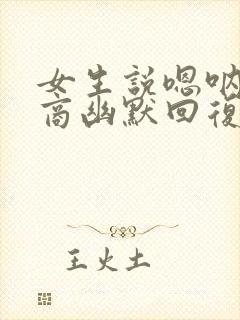 女生説嗯吶
商幽默回復
王火土